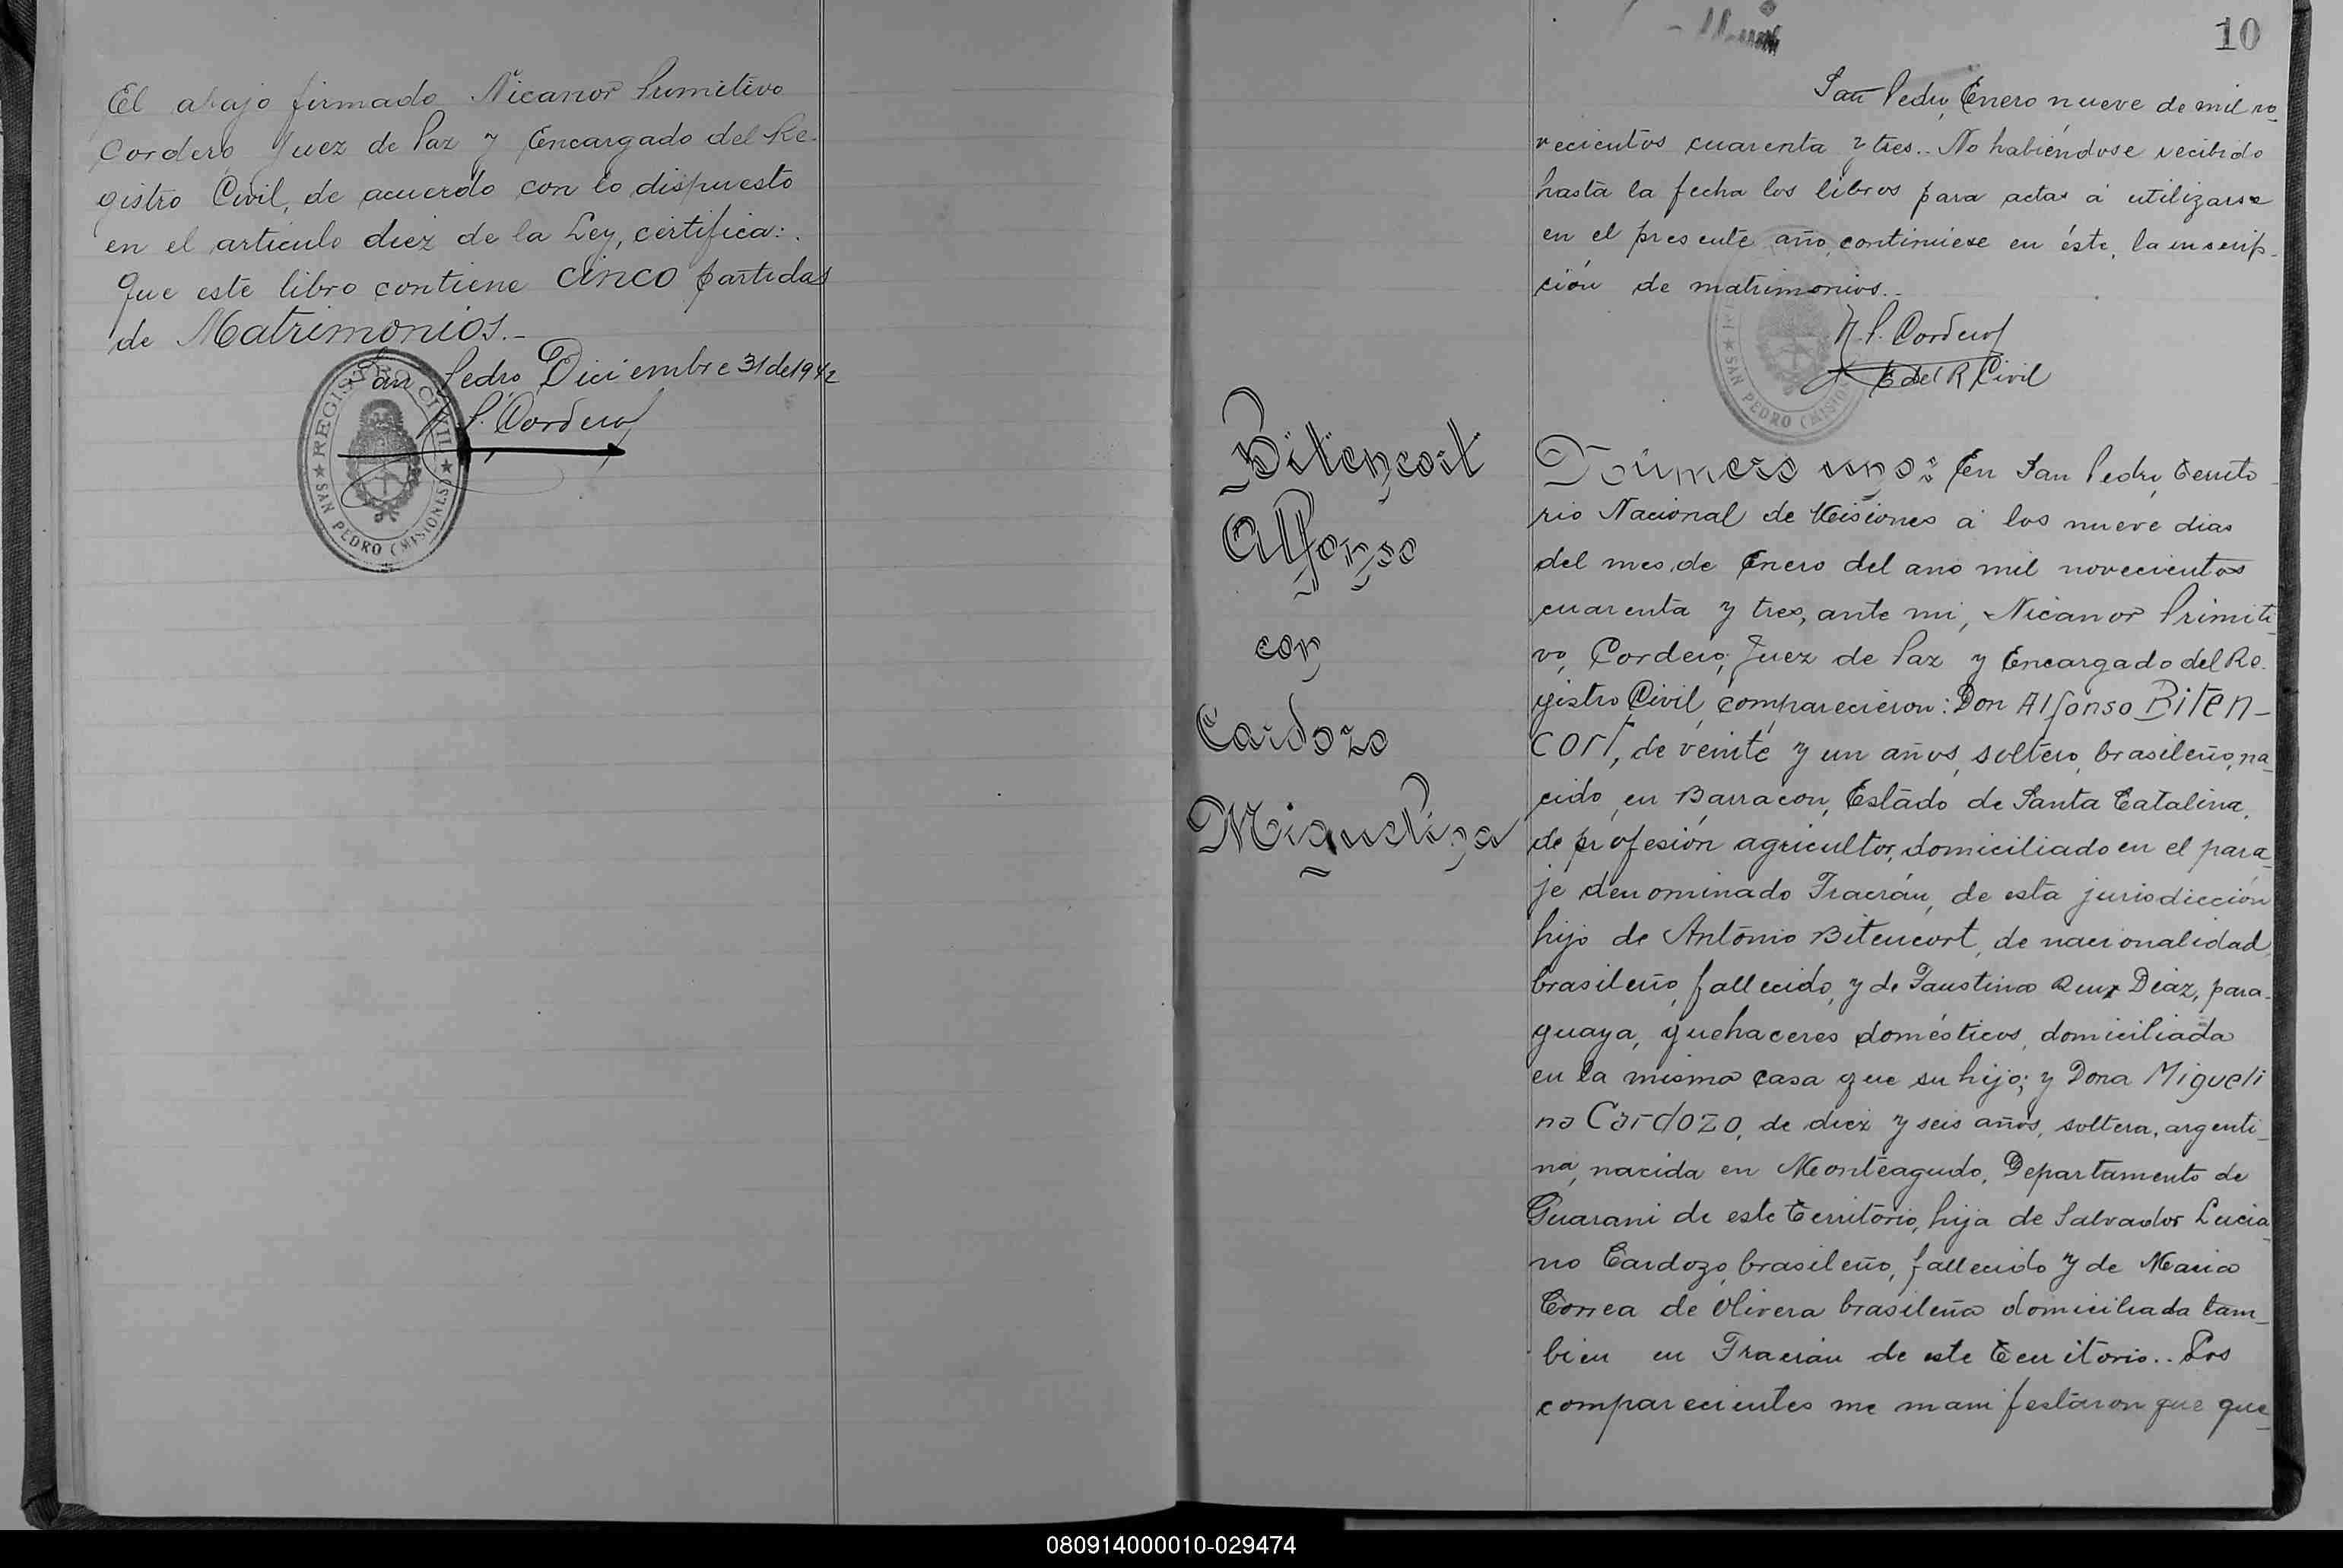 El abajo firmado Nicanor Primitivo
Cordero Juez de Paz y Encargado del Re-
gistro Civil, de acuerdo con lo dispuesto
en el articulo diez de la Ley, certifica:.
Que este libro contiene cinco partidas
de Matrimonios.-
San Pedro Diciembre 31 de 1942
N. P. Cordero
REGISTRO CIVIL
SAN PEDRO (MISIONES)
10
San Pedro, Enero nueve de mil no-
vecientos cuarenta y tres.. No habiéndose recibido
hasta la fecha los libros para actas á utilizarse
en el presente año, continúese en éste, la inscrip-
ción de matrimonios.-
N. P. Cordero
E del R Civil
SAN PEDRO (MISIONES)
Bitencort
Alfonso
con
Cardozo
Miguelina
Número uno: En San Pedro, Territo
rio Nacional de Misiones á los nueve dias
del mes de Enero del ano mil novecientos
cuarenta y tres, ante mi, Nicanor Primiti-
vo, Cordero, Juez de Paz y Encargado del Re-
gistro Civil, comparecieron: Don Alfonso Biten-
cort, de veinte y un años, soltero, brasileño, na-
cido, en Barracon, Estado de Santa Catalina,
de profesión agricultor, domiciliado en el para-
je denominado Fracrán, de esta jurisdicción
hijo de Antonio Bitencort, de nacionalidad
brasileño, fallecido, y de Faustina Ruiz Diaz, para-
guaya, quehaceres domésticos, domiciliada
en la misma casa que su hijo; y Dona Migueli
na Cardozo, de diez y seis años, soltera, argenti-
na, nacida en Monteagudo, Departamento de
Guarani de este Territorio, hija de Salvador Lucia-
no Cardozo, brasileño, fallecido y de Maria
Correa de Olivera brasileña domiciliada tam-
bien en Fracrán de este Territorio.. Los
comparecientes me manifestaron que que-
080914000010-029474